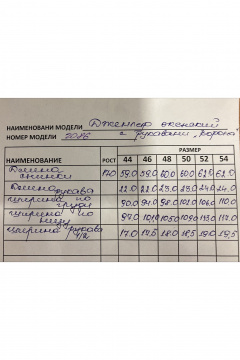 НАИМЕНОВАНИ МОДЕЛИ Джемпер женский
НОМЕР МОДЕЛИ 2026 с рукавами "Ворота"
РАЗМЕР
НАИМЕНОВАНИЕ РОСТ 44 46 48 50 52 54
Длина спинки 170 59,0 59,0 60,0 60,0 62,0 62,0
Длина рукава 22,0 22,0 23,0 23,0 24,0 24,0
ширина по груди 90,0 94,0 98,0 102,0 106,0 110,0
ширина по низу 97,0 101,0 105,0 109,0 113,0 117,0
ширина рукава 1/2 17,0 17,5 18,0 18,5 19,0 19,5